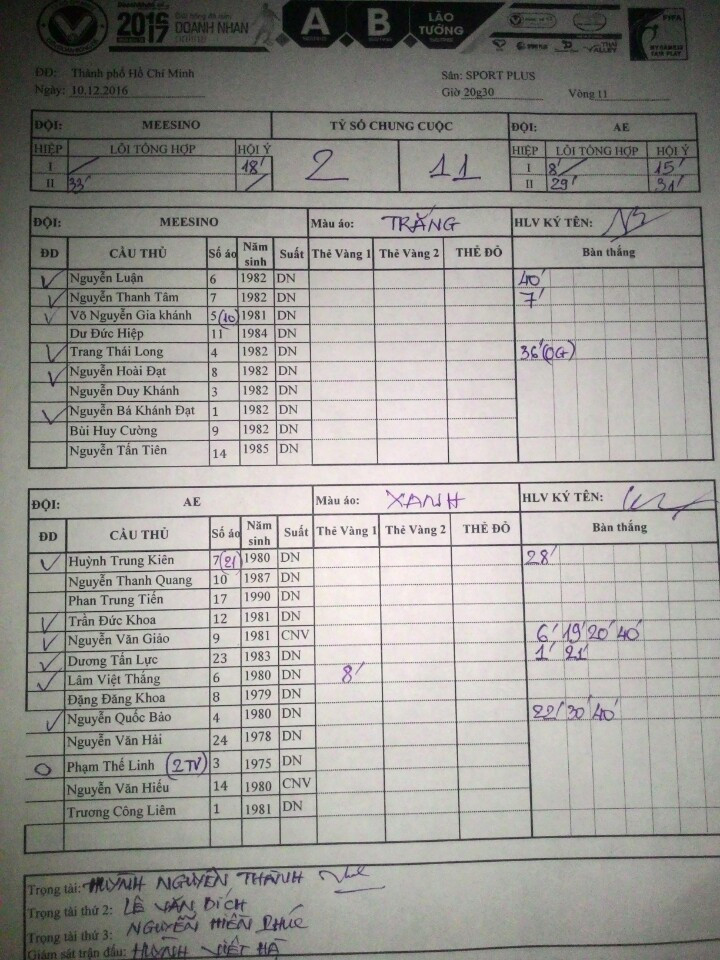 2016
2017
DOANH NHÂN
A
B
LÃO
TƯỚNG
FIFA
MY GAME IS
FAIR PLAY
ĐĐ: Thành phố Hồ Chí Minh Sân: SPORT PLUS
Ngày: 10.12.2016 Giờ 20g30 Vòng 11
ĐỘI: MEESINO TỶ SỐ CHUNG CUỘC ĐỘI: AE
HIỆP LỖI TỔNG HỢP HỘI Ý 2 11 HIỆP LỖI TỔNG HỢP HỘI Ý
I 18' I 8' 15'
II 33' II 29' 31'
ĐỘI: MEESINO Màu áo: TRẮNG HLV KÝ TÊN:
ĐD CẦU THỦ Số áo Năm sinh Suất Thẻ Vàng 1 Thẻ Vàng 2 THẺ ĐỎ Bàn thắng
Nguyễn Luận 6 1982 DN 40'
Nguyễn Thanh Tâm 7 1982 DN 7'
Võ Nguyễn Gia khánh 5 (10) 1981 DN
Dư Đức Hiệp 11 1984 DN
Trang Thái Long 4 1982 DN 36' (OG)
Nguyễn Hoài Đạt 8 1982 DN
Nguyễn Duy Khánh 3 1982 DN
Nguyễn Bá Khánh Đạt 1 1982 DN
Bùi Huy Cường 9 1982 DN
Nguyễn Tấn Tiên 14 1985 DN
ĐỘI: AE Màu áo: XANH HLV KÝ TÊN:
ĐD CẦU THỦ Số áo Năm sinh Suất Thẻ Vàng 1 Thẻ Vàng 2 THẺ ĐỎ Bàn thắng
Huỳnh Trung Kiên 7 (21) 1980 DN 28'
Nguyễn Thanh Quang 10 1987 DN
Phan Trung Tiến 17 1990 DN
Trần Đức Khoa 12 1981 DN
Nguyễn Văn Giáo 9 1981 CNV 6' 19' 20' 40'
Dương Tấn Lực 23 1983 DN 1' 21'
Lâm Việt Thắng 6 1980 DN 8'
Đặng Đăng Khoa 8 1979 DN
Nguyễn Quốc Bảo 4 1980 DN 22' 30' 40'
Nguyễn Văn Hải 24 1978 DN
Phạm Thế Linh (2TV) 3 1975 DN
Nguyễn Văn Hiếu 14 1980 CNV
Trương Công Liêm 1 1981 DN
Trọng tài: HUỲNH NGUYỄN THÀNH
Trọng tài thứ 2: LÊ VĂN BÍCH
Trọng tài thứ 3: NGUYỄN HIỀN PHÚC
Giám sát trận đấu: HUỲNH VIẾT HÀ